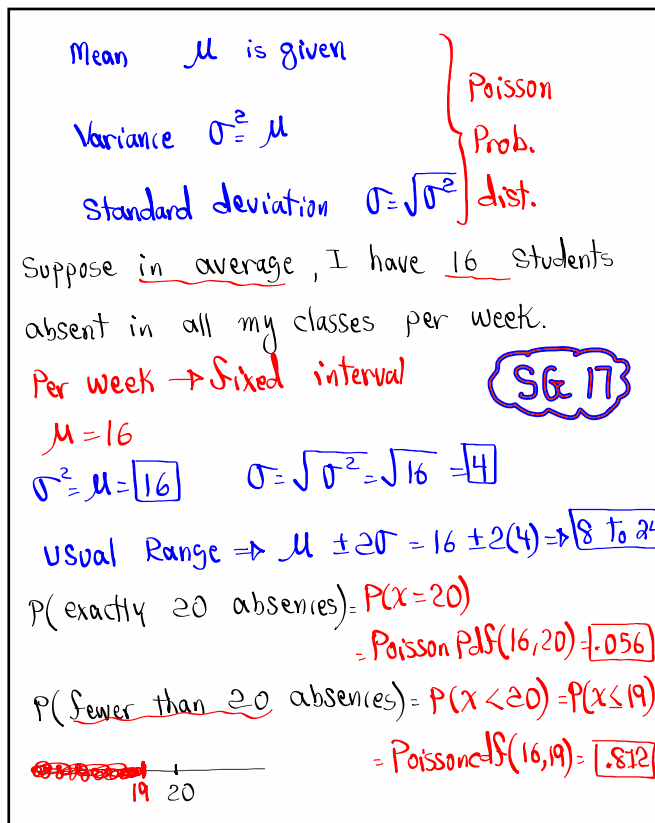 Mean μ is given
Variance σ² = μ
Standard deviation σ = √σ²
Poisson
Prob.
dist.
Suppose in average, I have 16 Students
absent in all my classes per week.
Per week → fixed interval
SG 17
μ = 16
σ² = μ = 16 σ = √σ² = √16 = 4
Usual Range ⇒ μ ± 2σ = 16 ± 2(4) ⇒ 8 to 24
P(exactly 20 absences) = P(x = 20)
= Poisson Pdf(16,20) = .056
P(fewer than 20 absences) = P(x < 20) = P(x ≤ 19)
= Poissoncdf(16,19) = .812
19 20